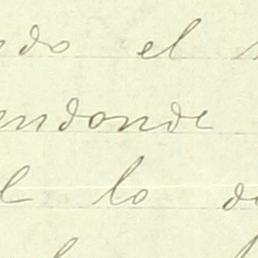 edo el
endonde
el lo de